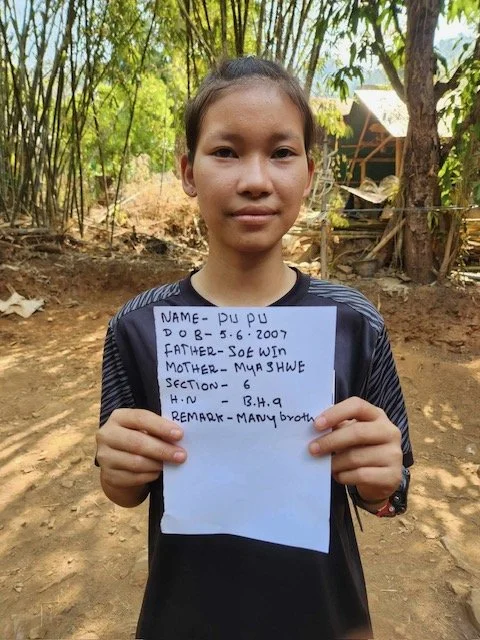 NAME- PU PU
D O B- 5.6.2007
FATHER- SOE WIN
MOTHER- MYA SHWE
SECTION- 6
H.N - B.H.9
REMARK- MANY broth